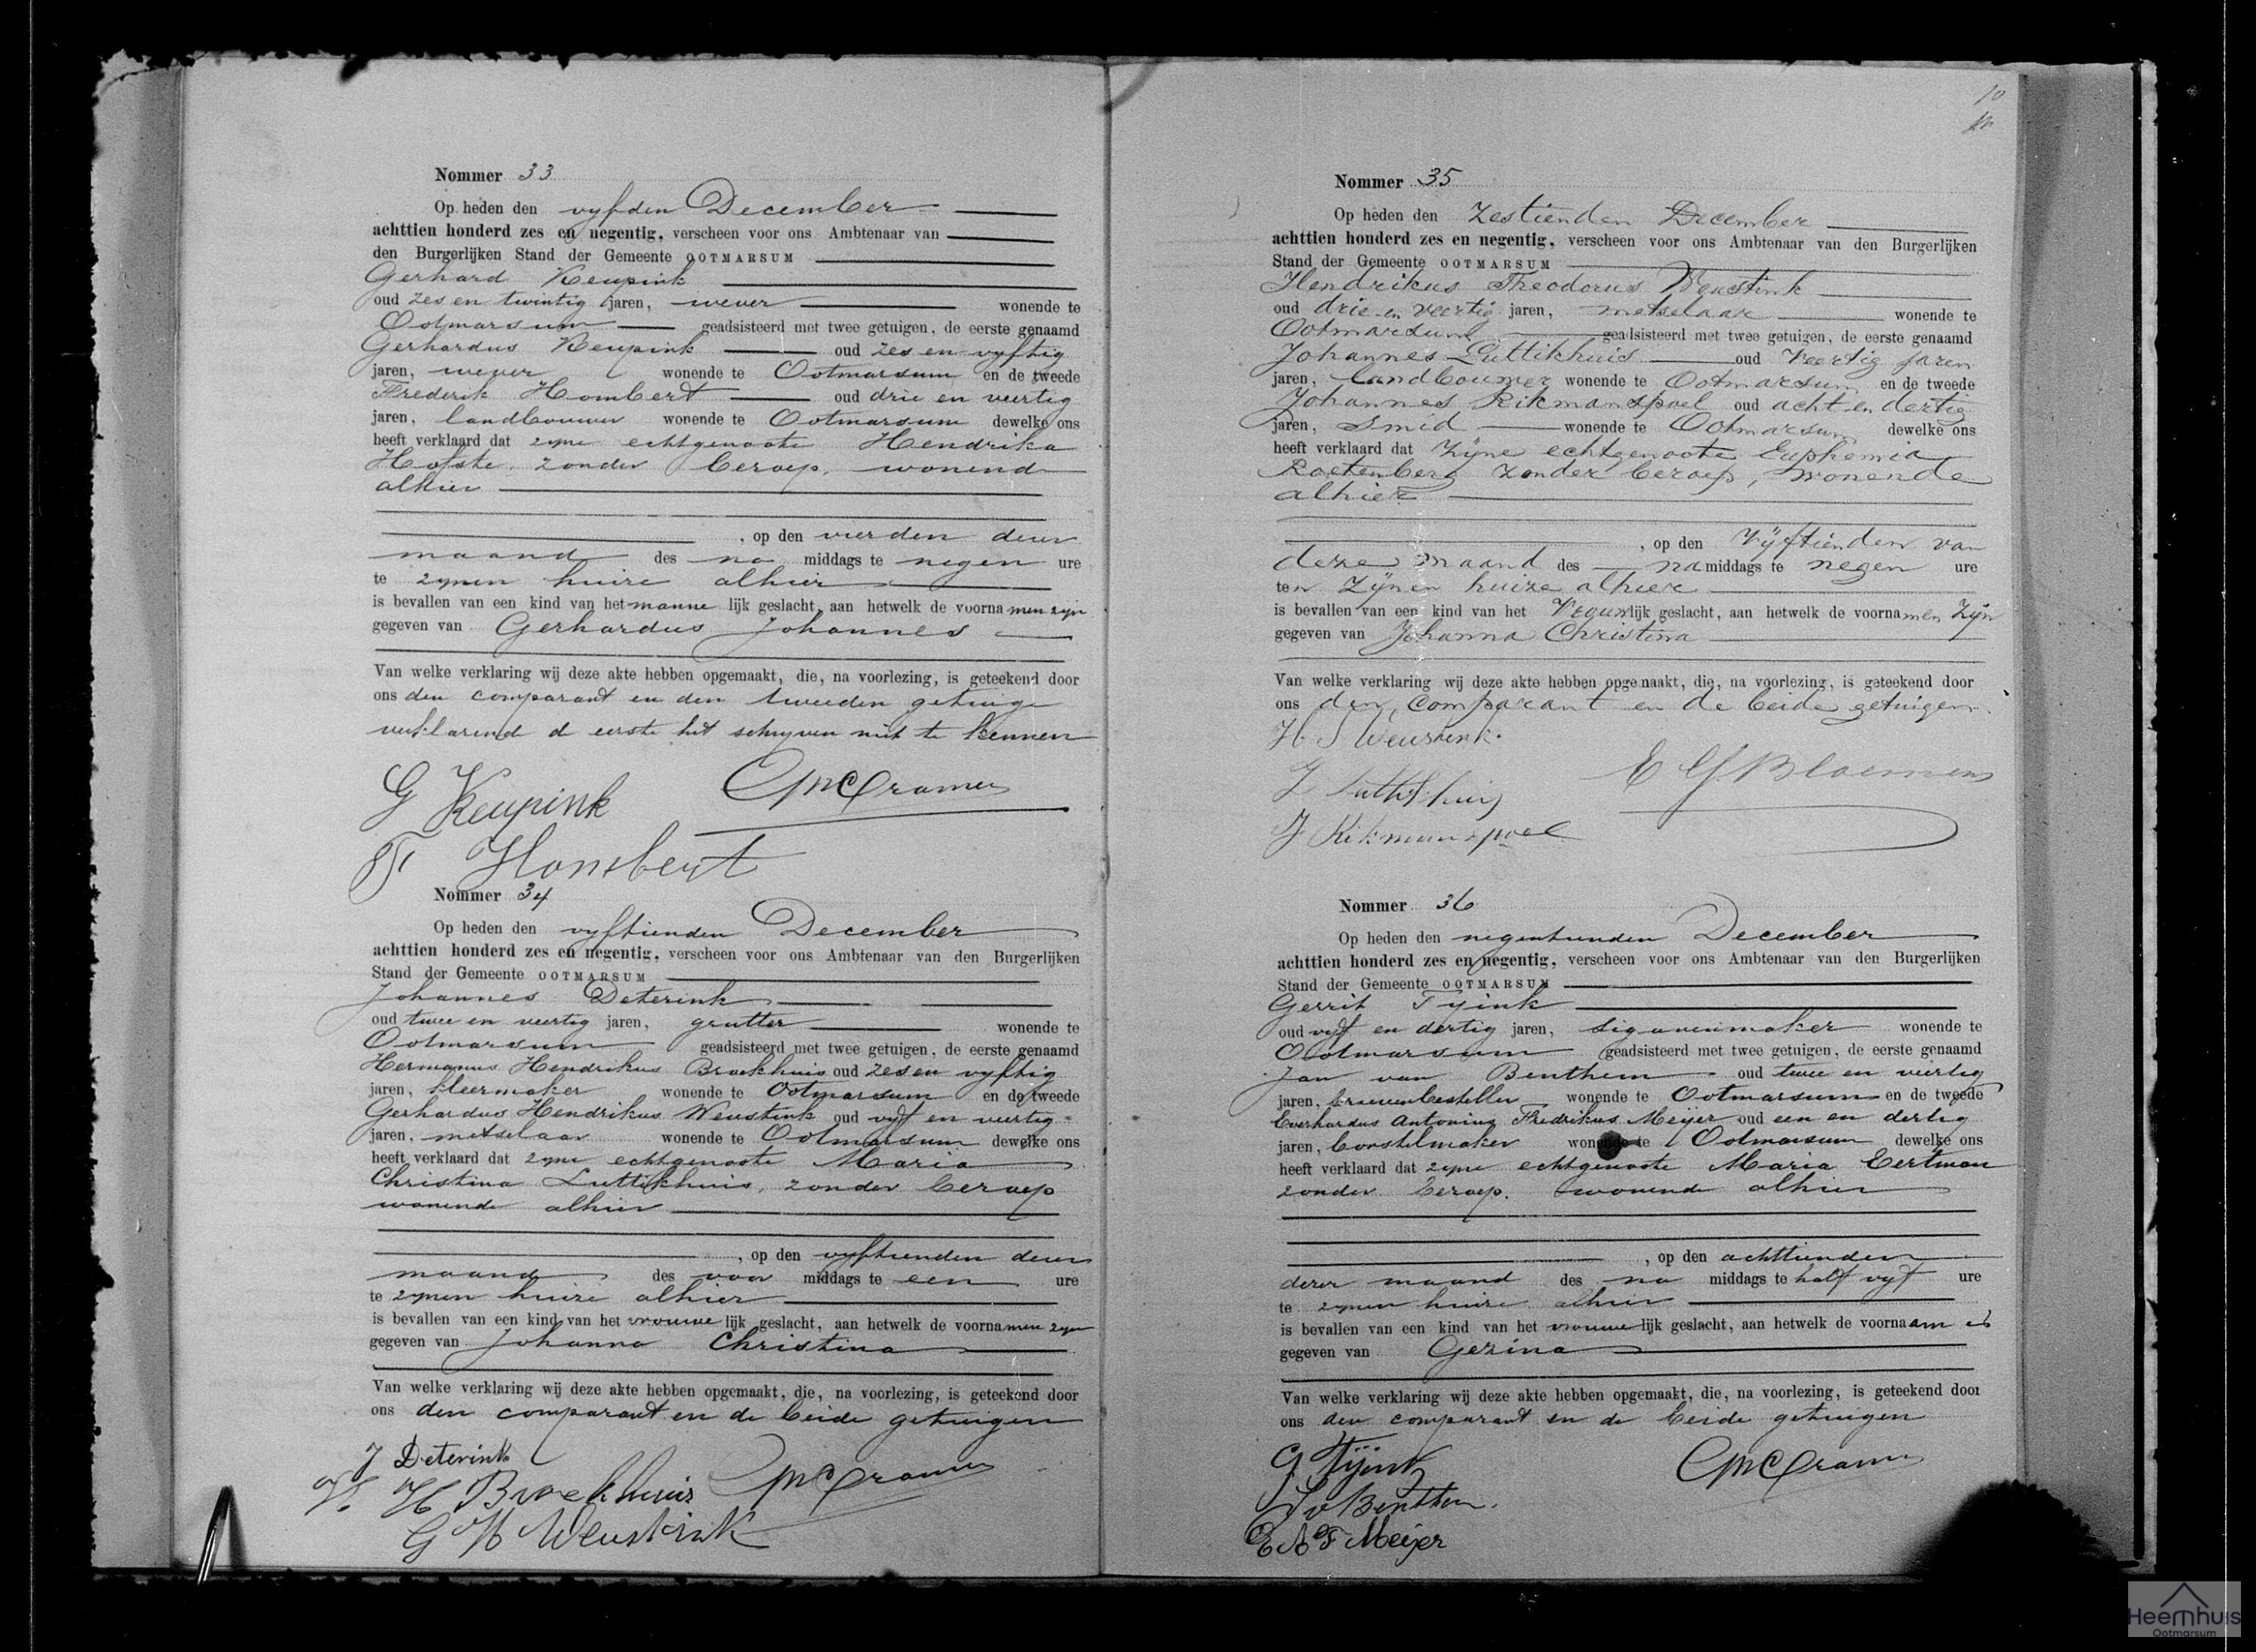 Nommer 33
Op heden den vyfden December
achttien honderd zes en negentig, verscheen voor ons Ambtenaar van
den Burgerlijken Stand der Gemeente OOTMARSUM
Gerhard Keupink
oud zes en twintig jaren, wever wonende te
Ootmarsum geadsisteerd met twee getuigen, de eerste genaamd
Gerhardus Keupink oud zes en vyftig
jaren, wever wonende te Ootmarsum en de tweede
Frederik Hombert oud drie en veertig
jaren, landbouwer wonende te Ootmarsum dewelke ons
heeft verklaard dat zyne echtgenoote Hendrika
Hofste, zonder beroep, wonende
alhier
, op den vierden dezer
maand des na middags te negen ure
te zynen huize alhier
is bevallen van een kind van het manne lijk geslacht, aan hetwelk de voorna men zyn
gegeven van Gerhardus Johannes
Van welke verklaring wij deze akte hebben opgemaakt, die, na voorlezing, is geteekend door
ons den comparant en den tweeden getuige
verklarend d eerste het schryven niet te kennen
G Keupink
F Hombert
Nommer 34
Op heden den vyftienden December
achttien honderd zes en negentig, verscheen voor ons Ambtenaar van den Burgerlijken
Stand der Gemeente OOTMARSUM
Johannes Deterink
oud twee en veertig jaren, grutter wonende te
Ootmarsum geadsisteerd met twee getuigen, de eerste genaamd
Hermanus Hendrikus Broekhuis oud zes en vyftig
jaren, kleermaker wonende te Ootmarsum en de tweede
Gerhardus Hendrikus Weustink oud vyf en veertig
jaren, metselaar wonende te Ootmarsum dewelke ons
heeft verklaard dat zyne echtgenoote Maria
Christina Luttikhuis, zonder beroep
wonende alhier
, op den vyftienden dezer
maand des voor middags te een ure
te zynen huize alhier
is bevallen van een kind van het vrouwe lijk geslacht, aan hetwelk de voorna men zyn
gegeven van Johanna Christina
Van welke verklaring wij deze akte hebben opgemaakt, die, na voorlezing, is geteekend door
ons den comparant en de beide getuigen
J Deterink
H. H Broekhuis
G H Weustink
10
Nommer 35
Op heden den Zestienden December
achttien honderd zes en negentig, verscheen voor ons Ambtenaar van den Burgerlijken
Stand der Gemeente OOTMARSUM
Hendrikus Theodorus Weustink
oud drie en veertig jaren, metselaar wonende te
Ootmarsum geadsisteerd met twee getuigen, de eerste genaamd
Johannes Luttikhuis oud Veertig jaren
jaren, landbouwer wonende te Ootmarsum en de tweede
Johannes Rikmanspoel oud acht en dertig
jaren, Smid wonende te Ootmarsum dewelke ons
heeft verklaard dat Zijne echtgenoote Euphemia
Roetenberg zonder beroep, wonende
alhier
, op den Vijftienden van
deze maand des na middags te negen ure
ten Zijnen huize alhier
is bevallen van een kind van het Vrouwlijk geslacht, aan hetwelk de voornamen Zijn
gegeven van Johanna Christina
Van welke verklaring wij deze akte hebben opgemaakt, die, na voorlezing, is geteekend door
ons den, Comparant en de beide getuigen.
H. T Weustink.
J Luttikhuis
J Rikmanspoel
Nommer 36
Op heden den negentienden December
achttien honderd zes en negentig, verscheen voor ons Ambtenaar van den Burgerlijken
Stand der Gemeente OOTMARSUM
Gerrit Tyink
oud vyf en dertig jaren, sigarenmaker wonende te
Ootmarsum geadsisteerd met twee getuigen, de eerste genaamd
Jan van Benthem oud twee en veertig
jaren, brievenbesteller wonende te Ootmarsum en de tweede
Everhardus Antonius Fredrikus Meijer oud een en dertig
jaren, borstelmaker wonende te Ootmarsum dewelke ons
heeft verklaard dat zyne echtgenoote Maria Eertman
zonder beroep, wonende alhier
, op den achttienden
dezer maand des na middags te half vyf ure
te zynen huize alhier
is bevallen van een kind van het vrouwe lijk geslacht, aan hetwelk de voornaam is
gegeven van Gezina
Van welke verklaring wij deze akte hebben opgemaakt, die, na voorlezing, is geteekend door
ons den comparant en de beide getuigen
G Tijink
J v Benthem.
E A F Meijer
Heemhuis
Ootmarsum